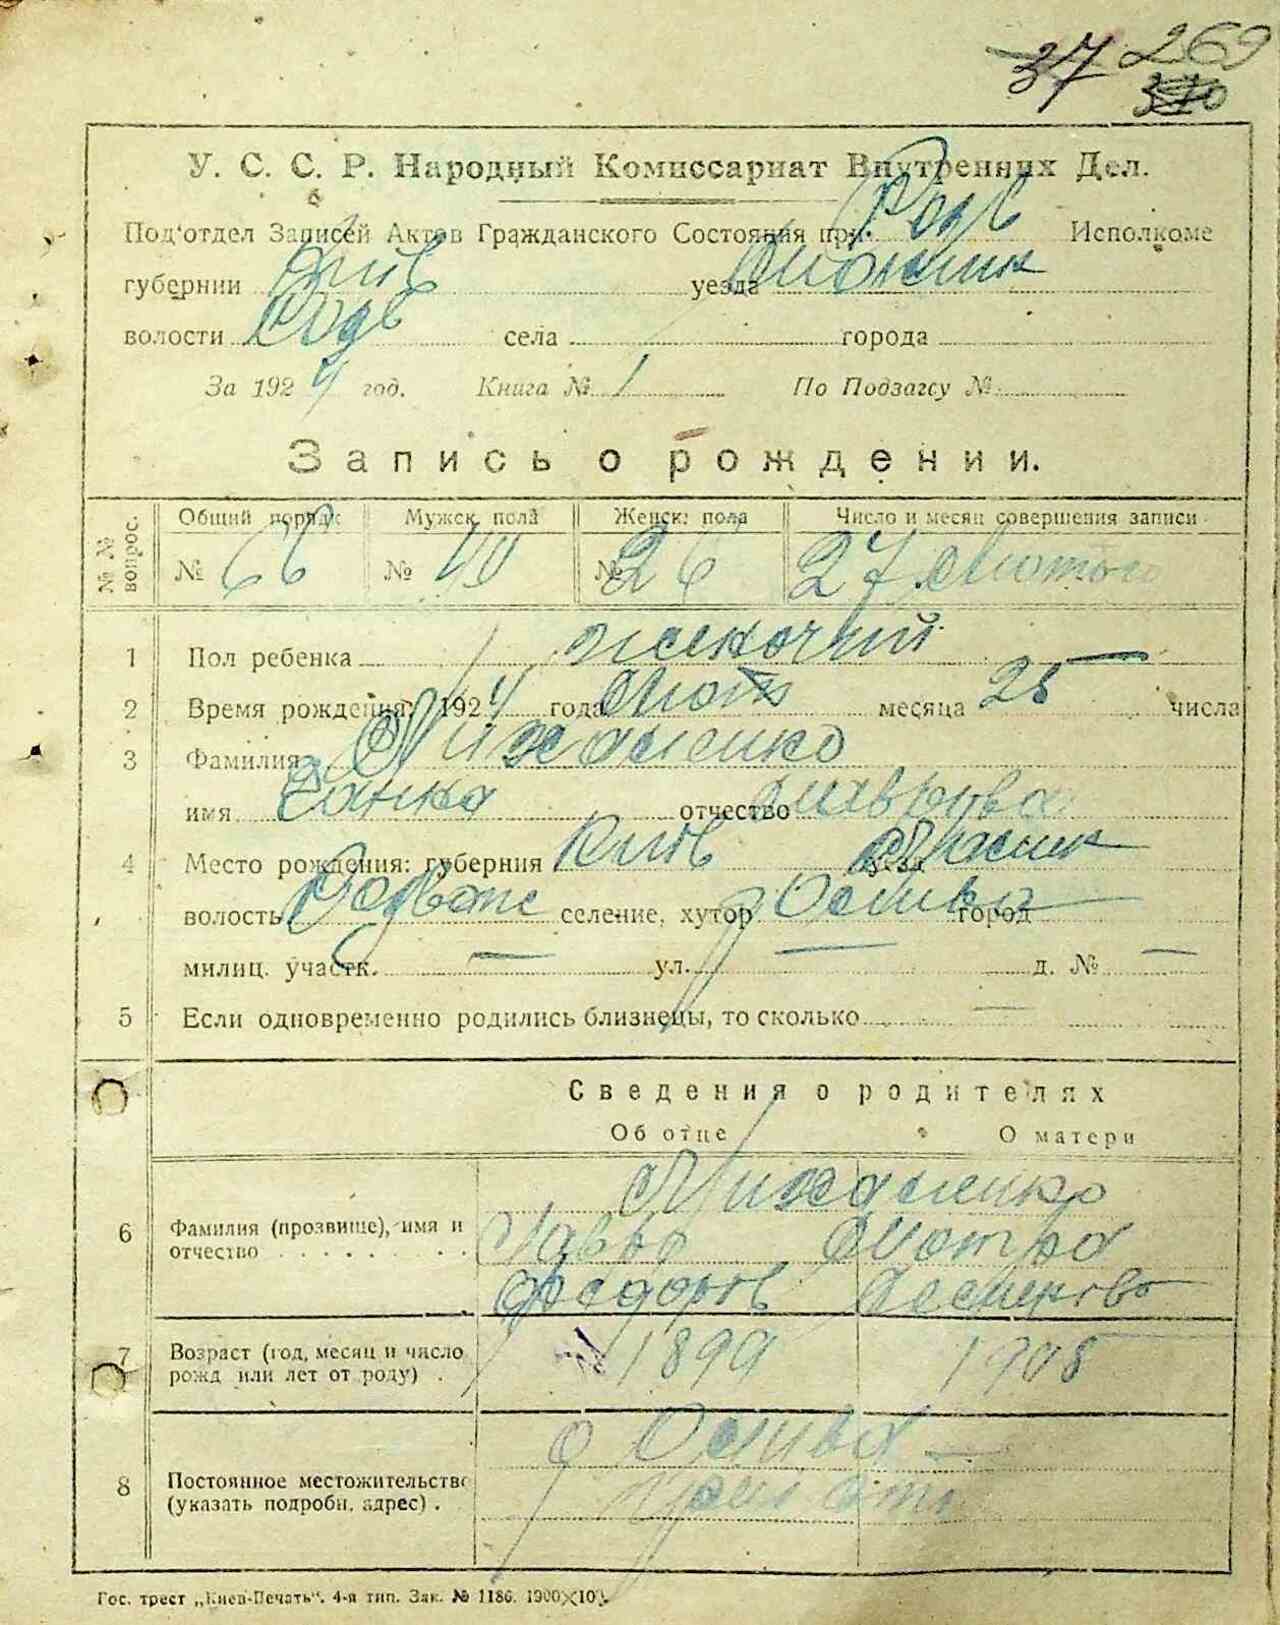 37 269
У. С. С. Р. Народный Комиссариат Внутренних Дел.
Под'отдел Записей Актов Гражданского Состояния при Исполкоме
губернии Київ уезда
волости села города
За 1924 год. Книга № 1 По Подзагсу №
Запись о рождении.
№№ вопрос. Общий порядк Мужск. пола Женск. пола Число и месяц совершения записи
№ 66 № 40 № 26 27 Лютого
1 Пол ребенка жіночий
2 Время рождения: 1924 года Лют месяца 25 числа
3 Фамилия Михаленко
имя Ганна отчество
4 Место рождения: губерния Київ уезд
волость селение, хутор город
милиц. участк. — ул. — д. № —
5 Если одновременно родились близнецы, то сколько —
Сведения о родителях
Об отце О матери
Михаленко
6 Фамилия (прозвище), имя и отчество Мотра
Федорів
7 Возраст (год, месяц и число рожд или лет от роду) . 1899 1905
8 Постоянное местожительство (указать подробн. адрес) .
Гос. трест „Киев-Печать“. 4-я тип. Зак. № 1186. 1900×100.